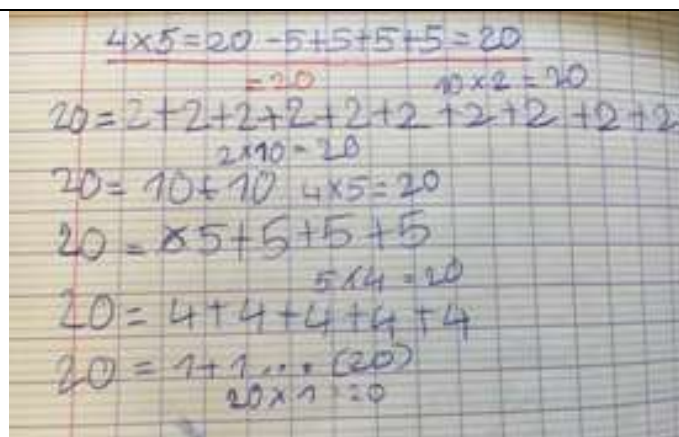 4×5=20 -5+5+5+5=20
=20
10×2=20
20=2+2+2+2+2+2+2+2+2+2
2×10=20
20=10+10 4×5=20
20=×5+5+5+5
5×4=20
20=4+4+4+4+4
20=1+1...(20)
20×1=20